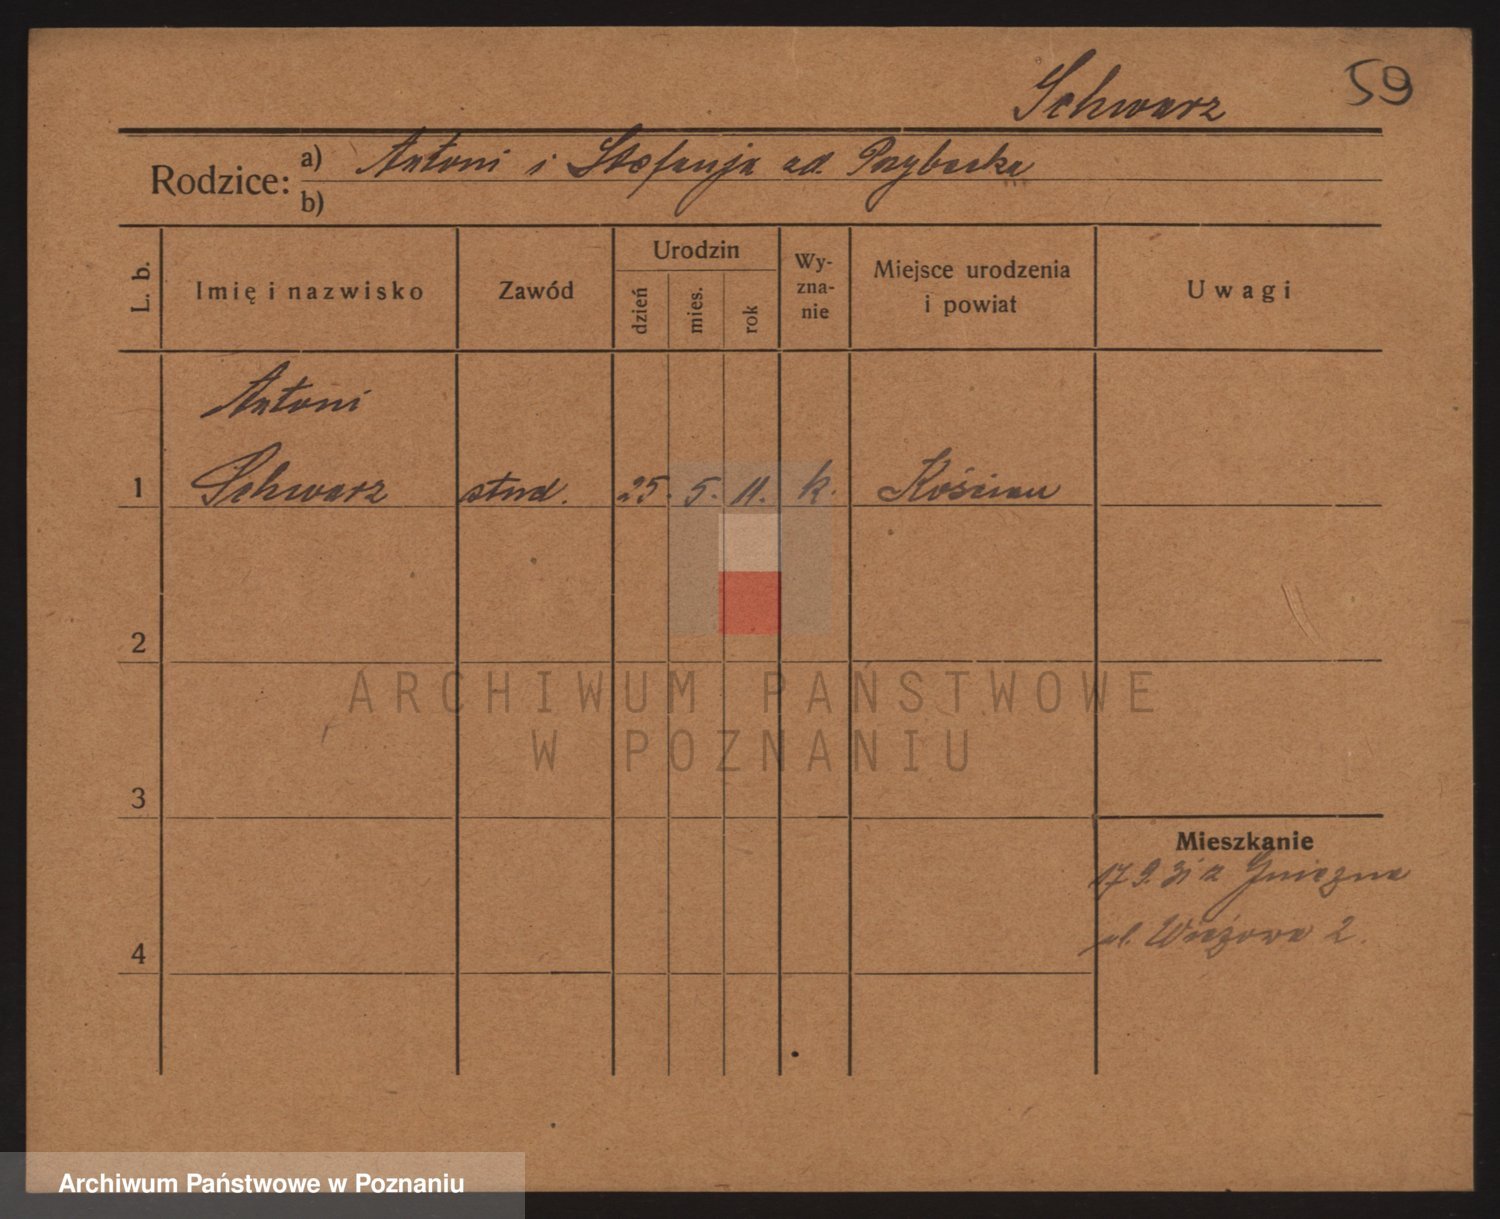 Schwarz 59
Rodzice: a) Antoni i Stefanja
b)
L. b. Imię i nazwisko Zawód Urodzin dzień mies. rok Wyznanie Miejsce urodzenia i powiat Uwagi
Antoni
1 Schwarz stud. 25. 5. 11. k. Kościan
2
ARCHIWUM PAŃSTWOWE
W POZNANIU
3
Mieszkanie
17 9. 31 z Gniezna
4 ul. Wieżowa 2.
Archiwum Państwowe w Poznaniu